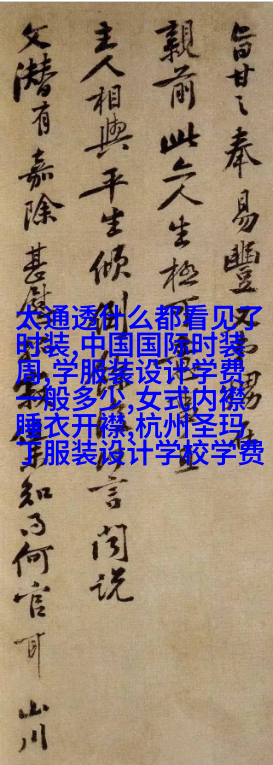 旨甘之奉易豐
親前此亦人生極可
主人相與平生傾倒 言聞說
文潛有嘉除甚慰 知 何官耶 山川
太通透什么都看见了
时装,中国国际时装
周,学服装设计学费
一般多少,女式内襟
睡衣开襟,杭州圣玛
丁服装设计学校学费